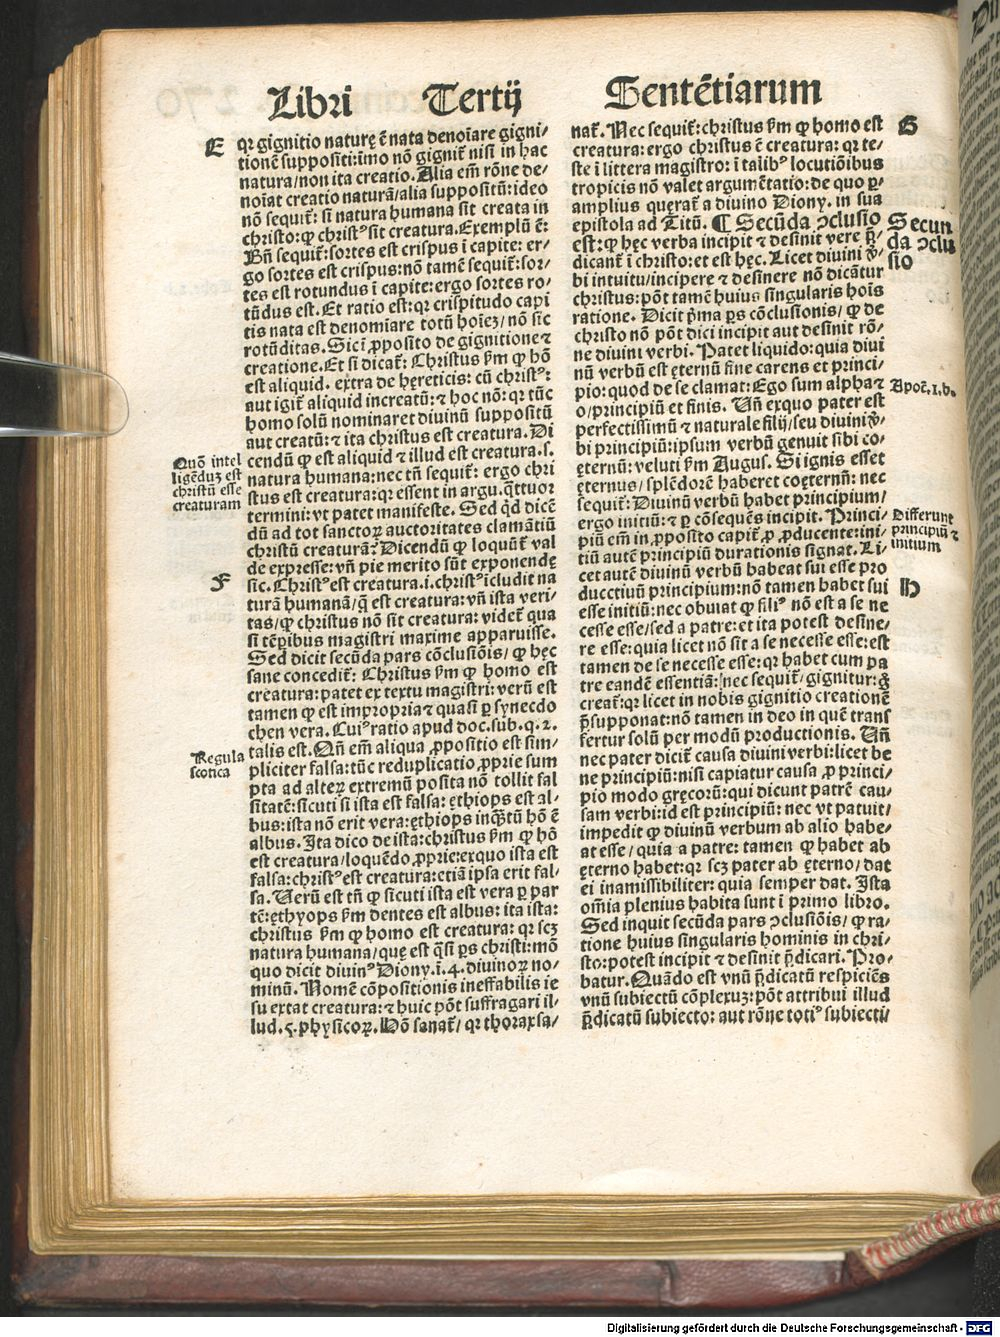 Libri Tertij Sentētiarum
E
qꝛ gignitio naturę ē nata denoīare gigni-
tionē suppositi: īmo nō gignit̄ nisi in hac
natura/non ita creatio. Alia em̄ rōne de-
noīat creatio naturā/alia suppositū: ideo
nō sequit̄: si natura humana sit creata in
christo: ꝙ christꝰ sit creatura. Exemplū ē:
Bn̄ sequit̄: sortes est crispus ī capite: er-
go sortes est crispus: nō tamē sequit̄: sor-
tes est rotundus ī capite: ergo sortes ro-
tūdus est. Et ratio est: qꝛ crispitudo capi
tis nata est denomīare totū hoīeꝫ/nō sic
rotūditas. Sic ī ꝓposito de gignitione ⁊
creatione. Et si dicat̄: Christus ẜm ꝙ hō
est aliquid. extra de hęreticis: cū christꝰ:
aut igit̄ aliquid increatū: ⁊ hoc nō: qꝛ tūc
homo solū nominaret diuinū suppositū
aut creatū: ⁊ ita christus est creatura. Di
cendū ꝙ est aliquid ⁊ illud est creatura. s.
natura humana: nec tn̄ sequit̄: ergo chri
stus est creatura: qꝛ essent in argu. q̄ttuor
termini: vt patet manifeste. Sed qd̄ dicē
dū ad tot sanctoꝝ auctoritates clamātiū
christū creaturā? Dicendū ꝙ loquūt̄ val
de expresse: vn̄ pie merito sūt exponendę
sic. Christꝰ est creatura. i. christꝰ īcludit na
turā humanā/q̄ est creatura: vn̄ ista veri-
tas/ꝙ christus nō sit creatura: videt̄ qua
si tēpibus magistri maxime apparuisse.
Sed dicit secūda pars cōclusiōis/ꝙ hęc
sane concedit̄: Christus ẜm ꝙ homo est
creatura: patet ex textu magistri: verū est
tamen ꝙ est impropria ⁊ quasi ꝑ synecdo
chen vera. Cuiꝰ ratio apud doc. sub. q. 2.
talis est. Qn̄ em̄ aliqua ꝓpositio est sim-
pliciter falsa: tūc reduplicatio ꝓprie sum
pta ad alteꝝ extremū posita nō tollit fal
sitatē: sicuti si ista est falsa: ęthiops est al-
bus: ista nō erit vera: ęthiops inq̄tū hō ē
albus. Ita dico de ista: christus ẜm ꝙ hō
est creatura/loquēdo ꝓprie: exquo ista est
falsa: christꝰ est creatura: etiā ipsa erit fal-
sa. Verū est tn̄ ꝙ sicuti ista est vera ꝑ par
tē: ęthyops ẜm dentes est albus: ita ista:
christus ẜm ꝙ homo est creatura: qꝛ scꝫ
natura humana/quę est q̄si ꝑs christi: mō
quo dicit diuinꝰ Diony. ī. 4. diuinoꝝ no-
minū. Nomē cōpositionis ineffabilis ie
su extat creatura: ⁊ huic pōt suffragari il-
lud. 5. physicoꝝ. Hō sanat̄/qꝛ thorax sa-
Quō intel
ligēduꝫ est
christū esse
creaturam
F
Regula
scotica
nat̄. Nec sequit̄: christus ẜm ꝙ homo est
creatura: ergo christus ē creatura: qꝛ te-
ste ī littera magistro: ī talibꝰ locutiōibus
tropicis nō valet argumētatio: de quo ꝑ-
amplius querat̄ a diuino Diony. in sua
epistola ad Titū. ¶ Secūda ↄclusio
est: ꝙ hęc verba incipit ⁊ desinit vere p̄-
dicant̄ ī christo: et est hęc. Licet diuini v̄-
bi intuitu/incipere ⁊ desinere nō dicātur
christus: pōt tamē huius singularis hoīs
ratione. Dicit p̄ma ꝑs cōclusionis/ꝙ de
christo nō pōt dici incipit aut desinit rō-
ne diuini verbi. Patet liquido: quia diui
nū verbū est ęternū fine carens et princi-
pio: quod de se clamat: Ego sum alpha ⁊
o/principiū et finis. Vn̄ exquo pater est
perfectissimū ⁊ naturale filij/seu diuini v̄-
bi principiū: ipsum verbū genuit sibi co-
ęternū: veluti ẜm Augus. Si ignis esset
ęternus/splēdorē haberet coęternū: nec
sequit̄: Diuinū verbū habet principium/
ergo initiū: ⁊ ꝑ cōsequēs incipit. Princi-
piū em̄ in ꝓposito capit̄ ꝓ ꝓducente: ini-
tiū autē principiū durationis signat. Li-
cet autē diuinū verbū habeat sui esse pro
ductiuū principium: nō tamen habet sui
esse initiū: nec obuiat ꝙ filiꝰ nō est a se ne
cesse esse/sed a patre: et ita potest desine-
re esse: quia licet nō sit a se necesse esse: est
tamen de se necesse esse: qꝛ habet cum pa
tre eandē essentiā: nec sequit̄/gignitur: g̊
creat̄: qꝛ licet in nobis gignitio creationē
p̄supponat: nō tamen in deo in quē trans
fertur solū per modū productionis. Vn̄
nec pater dicit̄ causa diuini verbi: licet be
ne principiū: nisi capiatur causa ꝓ princi-
pio modo gręcorū: qui dicunt patrē cau-
sam verbi: id est principiū: nec vt patuit/
impedit ꝙ diuinū verbum ab alio habe-
at esse/quia a patre: tamen ꝙ habet ab
ęterno habet: qꝛ scꝫ pater ab ęterno/dat
ei inamissibiliter: quia semper dat. Ista
oīa plenius habita sunt ī primo libro.
Sed inquit secūda pars ↄclusiōis/ꝙ ra-
tione huius singularis hominis in chri-
sto: potest incipit ⁊ desinit p̄dicari. Pro-
batur. Quādo est vnū p̄dicatū respiciēs
vnū subiectū cōplexuꝫ: pōt attribui illud
p̄dicatū subiecto: aut rōne totiꝰ subiecti/
G
Secun
da ↄclu
sio
Apoc̄. 1. b.
Differunt
principiū ⁊
initium
H
Digitalisierung gefördert durch die Deutsche Forschungsgemeinschaft - DFG